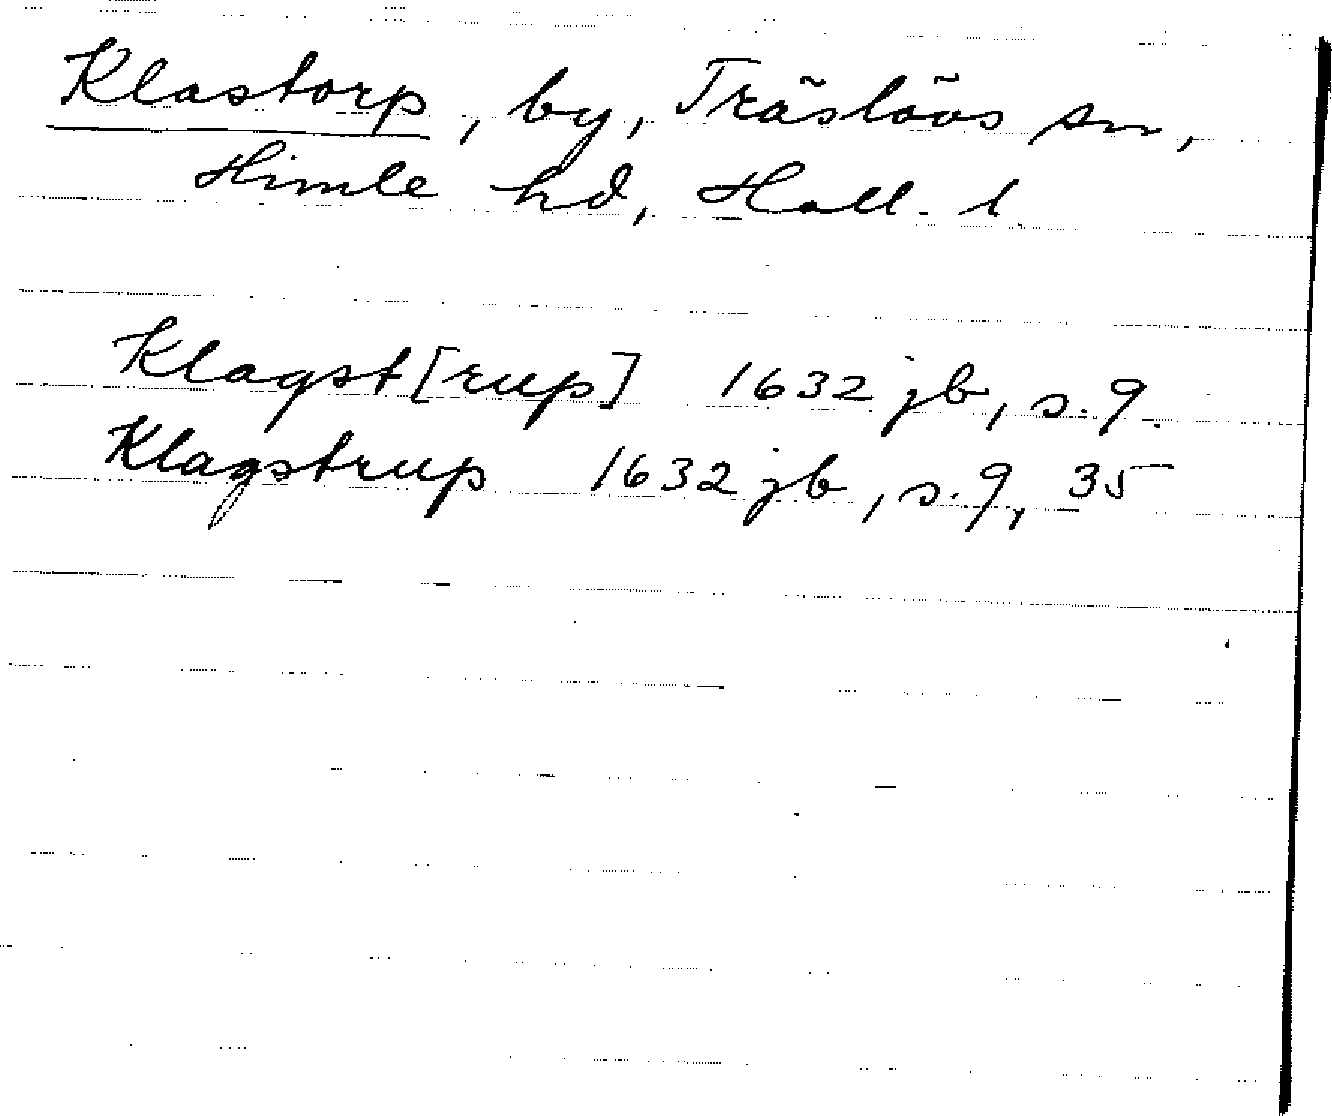 Klastorp, by, Träslövs sn,
Himle hd, Hall. l.
Klagst[rup] 1632 jb, s. 9.
Klagstrup 1632 jb, s. 9, 35